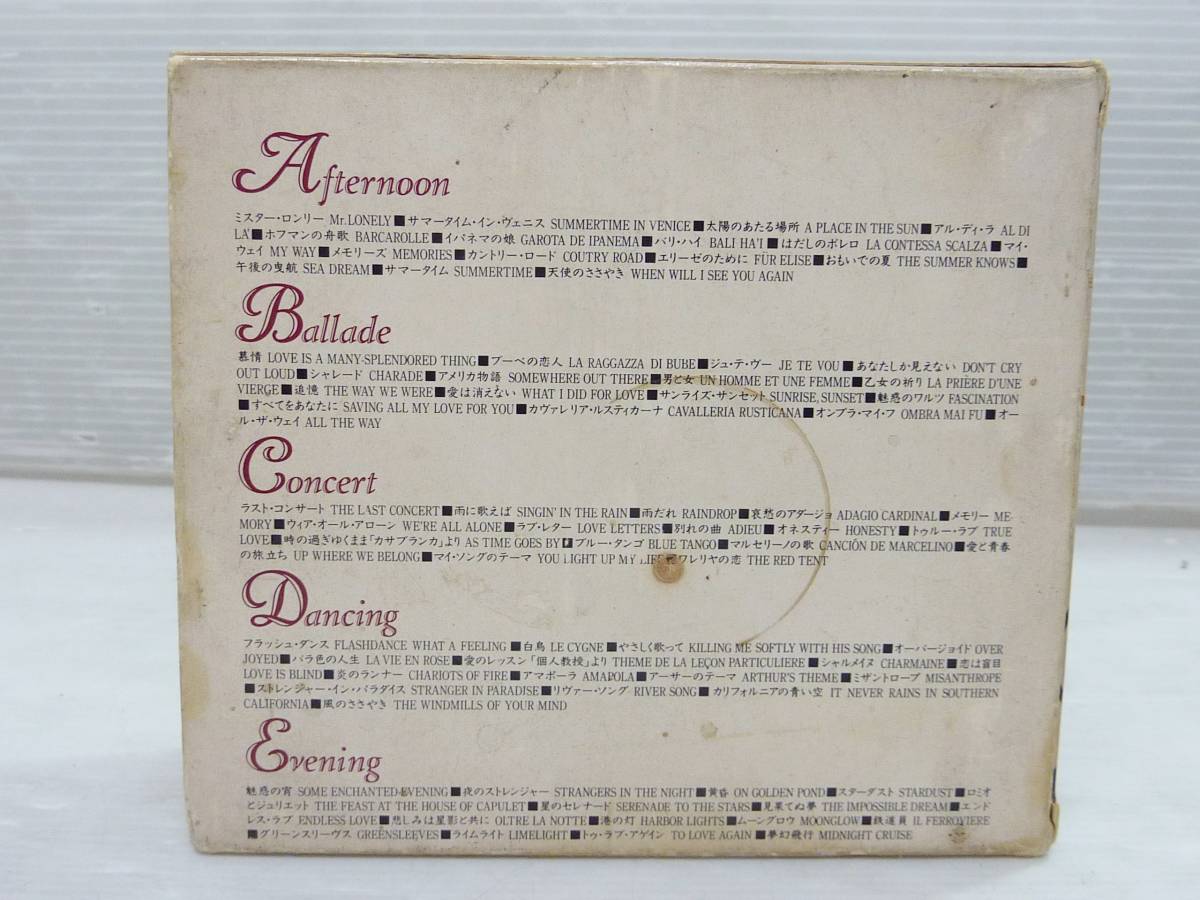 Afternoon
ミスター・ロンリー Mr. LONELY■サマータイム・イン・ヴェニス SUMMERTIME IN VENICE■太陽のあたる場所 A PLACE IN THE SUN■アル・ディ・ラ AL DI
LA'■ホフマンの舟歌 BARCAROLLE■イパネマの娘 GAROTA DE IPANEMA■バリ・ハイ BALI HA'I■はだしのボレロ LA CONTESSA SCALZA■マイ・
ウェイ MY WAY■メモリーズ MEMORIES■カントリー・ロード COUTRY ROAD■エリーゼのために FÜR ELISE■おもいでの夏 THE SUMMER KNOWS■
午後の曳航 SEA DREAM■サマータイム SUMMERTIME■天使のささやき WHEN WILL I SEE YOU AGAIN
Ballade
慕情 LOVE IS A MANY-SPLENDORED THING■ブーベの恋人 LA RAGGAZZA DI BUBE■ジュ・テ・ヴー JE TE VOU■あなたしか見えない DON'T CRY
OUT LOUD■シャレード CHARADE■アメリカ物語 SOMEWHERE OUT THERE■男と女 UN HOMME ET UNE FEMME■乙女の祈り LA PRIÈRE D'UNE
VIERGE■追憶 THE WAY WE WERE■愛は消えない WHAT I DID FOR LOVE■サンライズ・サンセット SUNRISE, SUNSET■魅惑のワルツ FASCINATION
■すべてをあなたに SAVING ALL MY LOVE FOR YOU■カヴァレリア・ルスティカーナ CAVALLERIA RUSTICANA■オンブラ・マイ・フ OMBRA MAI FU■オー
ル・ザ・ウェイ ALL THE WAY
Concert
ラスト・コンサート THE LAST CONCERT■雨に歌えば SINGIN' IN THE RAIN■雨だれ RAINDROP■哀愁のアダージョ ADAGIO CARDINAL■メモリー ME-
MORY■ウィア・オール・アローン WE'RE ALL ALONE■ラブ・レター LOVE LETTERS■別れの曲 ADIEU■オネスティー HONESTY■トゥルー・ラブ TRUE
LOVE■時の過ぎゆくまま「カサブランカ」より AS TIME GOES BY■ブルー・タンゴ BLUE TANGO■マルセリーノの歌 CANCIÓN DE MARCELINO■愛と青春
の旅立ち UP WHERE WE BELONG■マイ・ソングのテーマ YOU LIGHT UP MY LIFE■ワレリヤの恋 THE RED TENT
Dancing
フラッシュ・ダンス FLASHDANCE WHAT A FEELING■白鳥 LE CYGNE■やさしく歌って KILLING ME SOFTLY WITH HIS SONG■オーバージョイド OVER
JOYED■バラ色の人生 LA VIE EN ROSE■愛のレッスン「個人教授」より THEME DE LA LEÇON PARTICULIERE■シャルメイヌ CHARMAINE■恋は盲目
LOVE IS BLIND■炎のランナー CHARIOTS OF FIRE■アマポーラ AMAPOLA■アーサーのテーマ ARTHUR'S THEME■ミザントロープ MISANTHROPE
■ストレンジャー・イン・パラダイス STRANGER IN PARADISE■リヴァー・ソング RIVER SONG■カリフォルニアの青い空 IT NEVER RAINS IN SOUTHERN
CALIFORNIA■風のささやき THE WINDMILLS OF YOUR MIND
Evening
魅惑の宵 SOME ENCHANTED EVENING■夜のストレンジャー STRANGERS IN THE NIGHT■黄昏 ON GOLDEN POND■スターダスト STARDUST■ロミオ
とジュリエット THE FEAST AT THE HOUSE OF CAPULET■星のセレナード SERENADE TO THE STARS■見果てぬ夢 THE IMPOSSIBLE DREAM■エンド
レス・ラブ ENDLESS LOVE■悲しみは星影と共に OLTRE LA NOTTE■港の灯 HARBOR LIGHTS■ムーングロウ MOONGLOW■鉄道員 IL FERROVIERE
■グリーンスリーヴス GREENSLEEVES■ライムライト LIMELIGHT■トゥ・ラブ・アゲイン TO LOVE AGAIN■夢幻飛行 MIDNIGHT CRUISE